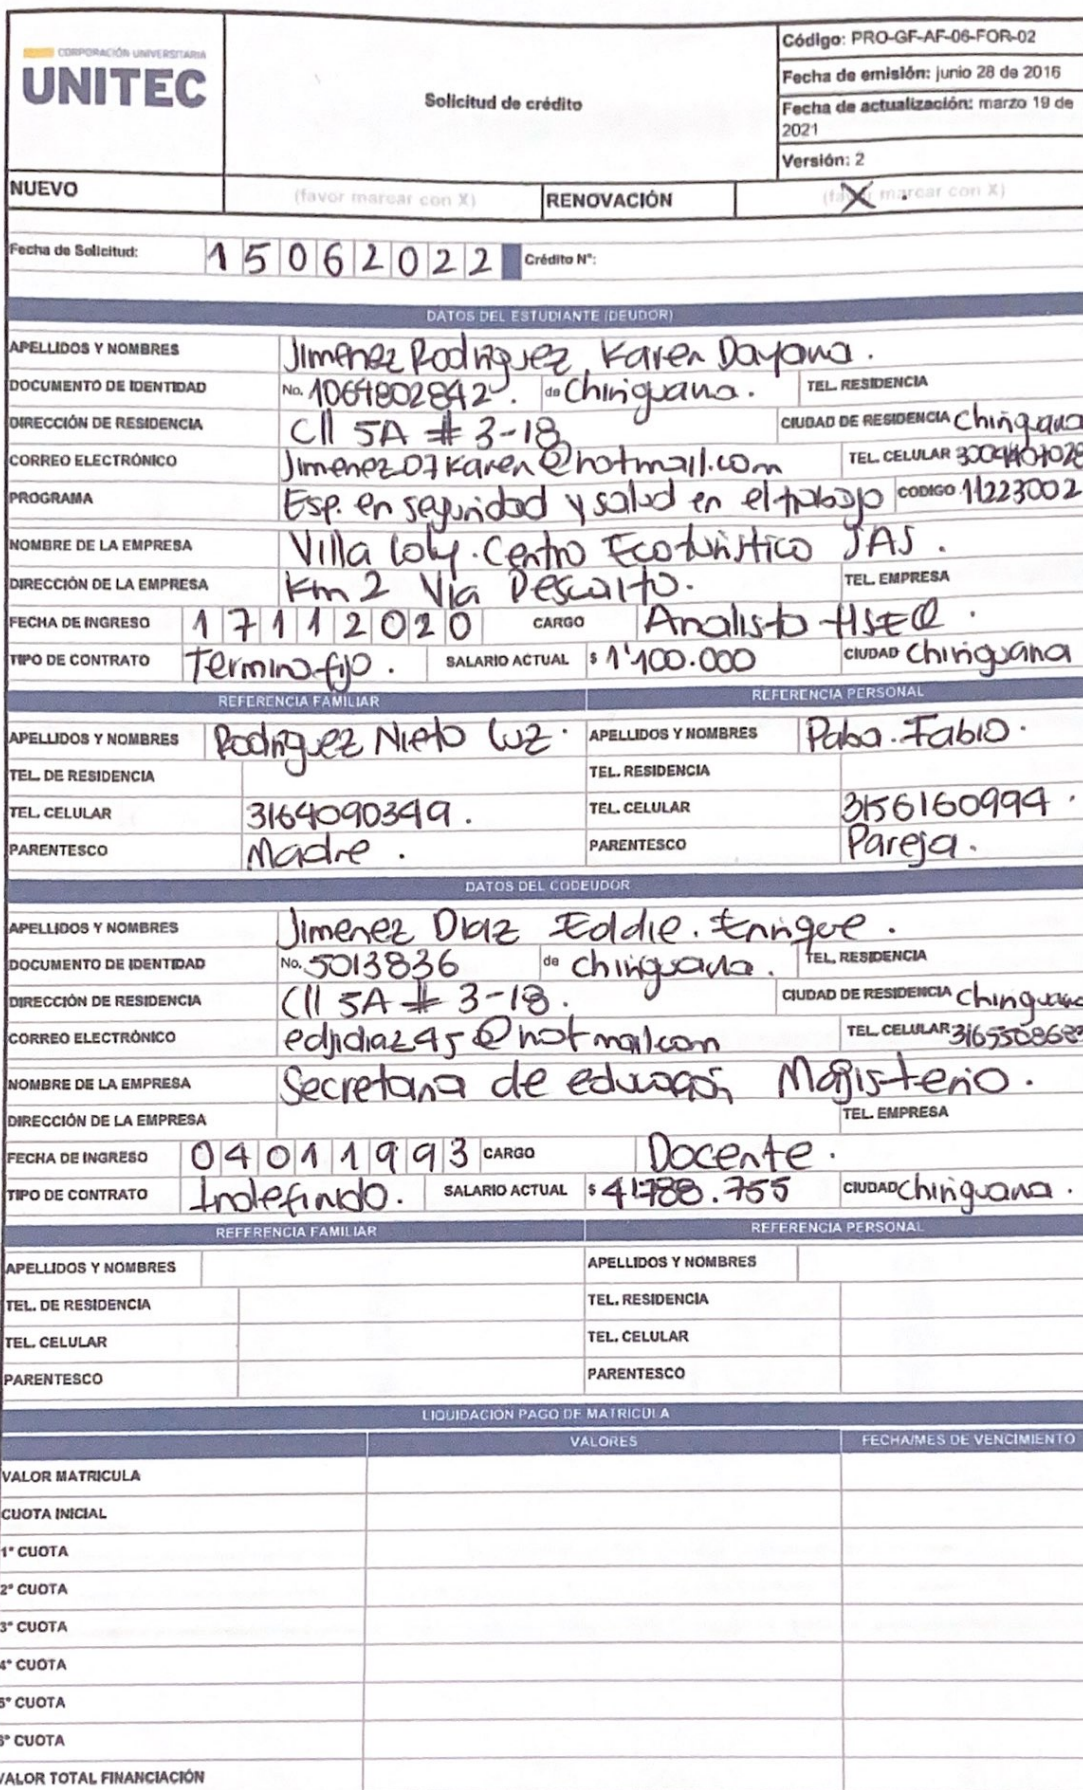 CORPORACIÓN UNIVERSITARIA
UNITEC
Solicitud de crédito
Código: PRO-GF-AF-06-FOR-02
Fecha de emisión: junio 28 de 2016
Fecha de actualización: marzo 19 de
2021
Versión: 2
NUEVO (favor marcar con X) RENOVACIÓN (favor marcar con X) X
Fecha de Solicitud: 15062022 Crédito N°:
DATOS DEL ESTUDIANTE (DEUDOR)
APELLIDOS Y NOMBRES Jimenez Rodriguez Karen Dayana.
DOCUMENTO DE IDENTIDAD No. 1064802842. de Chiriguana. TEL. RESIDENCIA
DIRECCIÓN DE RESIDENCIA Cll 5A # 3-18 CIUDAD DE RESIDENCIA Chiriguana
CORREO ELECTRÓNICO Jimenez07Karen@hotmail.com TEL. CELULAR
PROGRAMA Esp. en seguridad y salud en el trabajo CODIGO 11223002
NOMBRE DE LA EMPRESA Villa Centro Ecoturistico SAS.
DIRECCIÓN DE LA EMPRESA Km 2 Via TEL. EMPRESA
FECHA DE INGRESO 17112020 CARGO Analista HSEQ.
TIPO DE CONTRATO Termino fijo. SALARIO ACTUAL $ 1'100.000 CIUDAD Chiriguana
REFERENCIA FAMILIAR REFERENCIA PERSONAL
APELLIDOS Y NOMBRES Rodriguez Nieto Luz. APELLIDOS Y NOMBRES Paba. Fabio.
TEL. DE RESIDENCIA TEL. RESIDENCIA
TEL. CELULAR 3164090349. TEL. CELULAR 3156160994.
PARENTESCO Madre. PARENTESCO Pareja.
DATOS DEL CODEUDOR
APELLIDOS Y NOMBRES Jimenez Diaz Eddie. Enrique.
DOCUMENTO DE IDENTIDAD No. 5013836 de Chiriguana. TEL. RESIDENCIA
DIRECCIÓN DE RESIDENCIA Cll 5A # 3-18. CIUDAD DE RESIDENCIA Chiriguana
CORREO ELECTRÓNICO edjidiaz45@hotmail.com TEL. CELULAR
NOMBRE DE LA EMPRESA Secretaria de educación Magisterio.
DIRECCIÓN DE LA EMPRESA TEL. EMPRESA
FECHA DE INGRESO 04011993 CARGO Docente.
TIPO DE CONTRATO Indefinido. SALARIO ACTUAL $ 4'788.755 CIUDAD Chiriguana.
REFERENCIA FAMILIAR REFERENCIA PERSONAL
APELLIDOS Y NOMBRES APELLIDOS Y NOMBRES
TEL. DE RESIDENCIA TEL. RESIDENCIA
TEL. CELULAR TEL. CELULAR
PARENTESCO PARENTESCO
LIQUIDACIÓN PAGO DE MATRICULA
VALORES FECHA/MES DE VENCIMIENTO
VALOR MATRICULA
CUOTA INICIAL
1° CUOTA
2° CUOTA
3° CUOTA
4° CUOTA
5° CUOTA
6° CUOTA
VALOR TOTAL FINANCIACIÓN